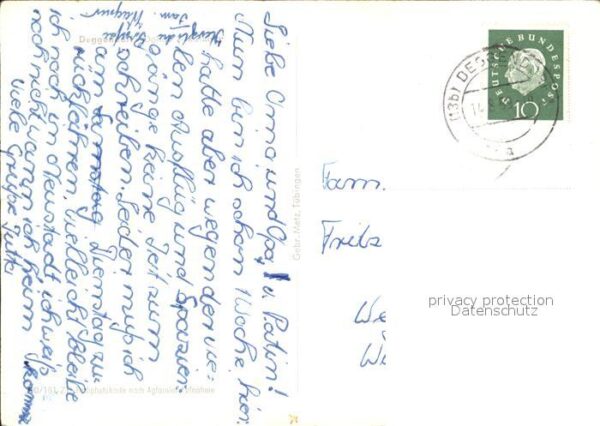 Liebe Oma, und Opa, u. Patin!
Nun bin ich schon 1 Woche hier.
hatte aber wegen der vie-
len Ausflüg und Spazier-
gänge keine Zeit zum
schreiben. Leder muß ich
am Samstag Dienstag zu
rückfahren. Vielleicht bleibe
ich noch in Neustadt ich weiß
noch nicht wann ich heim komme
Viele Grüße Jutta
Herzliche Grüße
Fam. Wagner
Gebr. Metz, Tübingen
Fam.
Fritz
We
Wa
DEUTSCHE BUNDESPOST
10
(13b) DEGGENDORF
privacy protection
Datenschutz